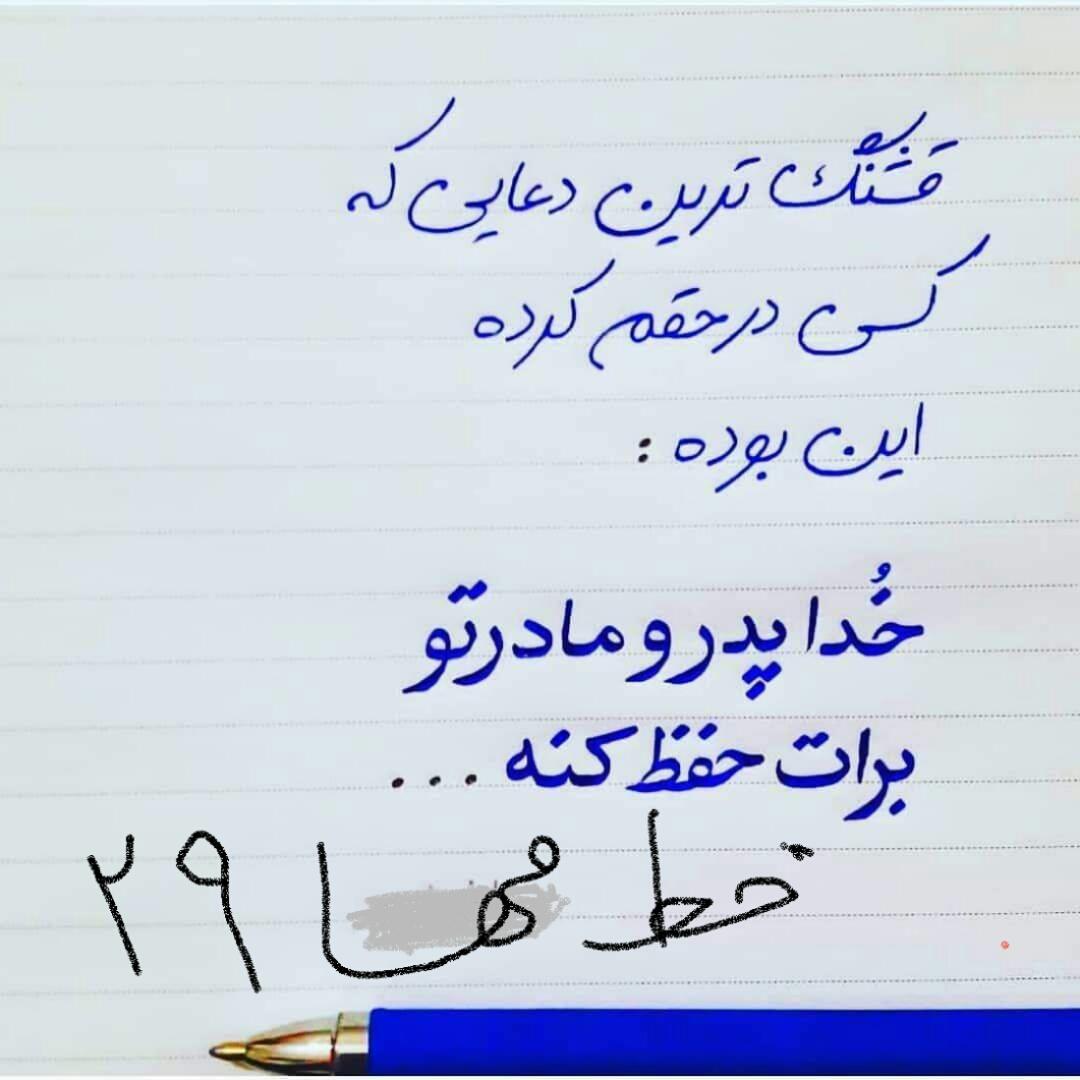 قشنگ ترین دعایی که
کسی در حقم کرده
این بوده :
خُدا پدر و مادرتو
برات حفظ کنه ...
خط مها ۲۹